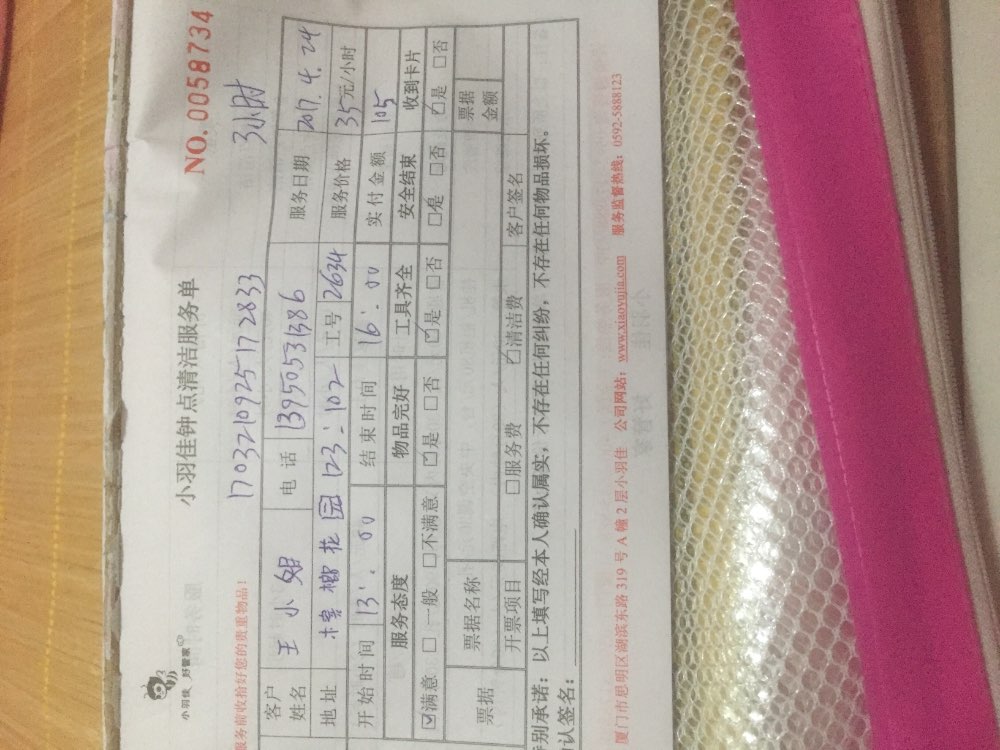 小羽佳 好管家
小羽佳钟点清洁服务单
NO.0058734
服务前收拾好您的贵重物品!
17032109251712833
3小时
客户姓名 王小姐 电话 13950531386 服务日期 2017.4.24
地址 123-102 工号 2634 服务价格 35元/小时
开始时间 13:00 结束时间 16:00 实付金额 105
服务态度 物品完好 工具齐全 安全结束 收到卡片
☑满意 □一般 □不满意 ☑是 □否 ☑是 □否 □是 □否 ☑是 □否
票据 票据名称 票据金额
开票项目 □服务费 ☑清洁费 客户签名
别承诺:以上填写经本人确认属实,不存在任何纠纷,不存在任何物品损坏。
认签名:
厦门市思明区湖滨东路 319 号 A 幢 2 层小羽佳 公司网站:www.xiaoyujia.com 服务监督热线:0592-5888123